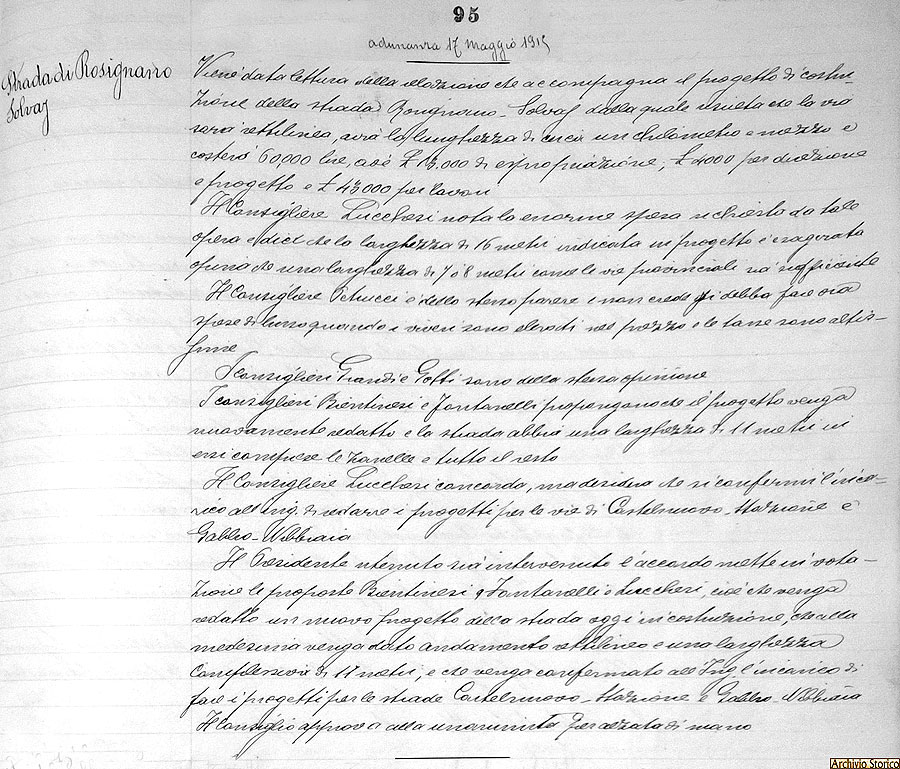 95
adunanza 17 maggio 1915
Strada di Rosignano
Solvay
Viene data lettura della relazione che accompagna il progetto di costru-
zione della strada Rosignano-Solvay dalla quale risulta che la via
sarà rettilinea, avrà la lunghezza di circa un chilometro e mezzo e
costerà 60,000 lire, cioè £ 13.000 di espropriazione, £ 4000 per direzione
e progetto e £ 43000 per lavori
Il Consigliere Luccheri nota la enorme spesa richiesta da tale
opera e dice che la larghezza di 16 metri indicata in progetto è esagerata
opina che una larghezza di 7 o 8 metri come le vie provinciali sia sufficiente
Il Consigliere è dello stesso parere e non crede si debba fare
spese di lusso quando i viveri sono elevati nel prezzo e le tasse sono altis-
sime
I consiglieri Grandi e Gotti sono della stessa opinione
I consiglieri Bientinesi e Fontanelli propongono che il progetto venga
nuovamente redatto e la strada abbia una larghezza di 11 metri in
essi comprese le zanelle e tutto il resto
Il Consigliere Luccheri concorda, ma desidera che si confermi l'inca-
rico all'Ing. di redarre i progetti per le vie di Castelnuovo-Stazione e
Gabbro-Nibbiaia
Il Presidente ritenuto sia intervenuto l'accordo mette in vota-
zione le proposte Bientinesi, Fontanelli e Luccheri, cioè che venga
redatto un nuovo progetto della strada oggi in costruzione, che alla
medesima venga dato andamento rettilineo e una larghezza
complessiva di 11 metri, e che venga confermato all'Ing. l'incarico di
fare i progetti per le strade Castelnuovo-Stazione e Gabbro-Nibbiaia
Il Consiglio approva alla unanimità per alzata di mano
Archivio Storico